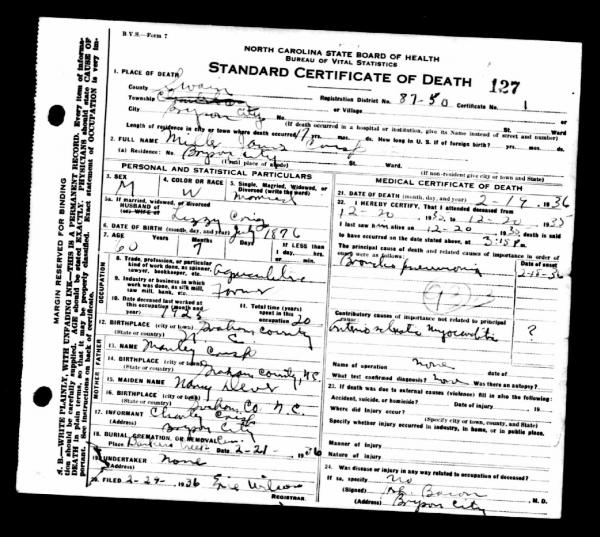 B.V.S.—Form 7
NORTH CAROLINA STATE BOARD OF HEALTH
BUREAU OF VITAL STATISTICS
STANDARD CERTIFICATE OF DEATH 127
1. PLACE OF DEATH
County Swain
Registration District No. 87-50 Certificate No. 1
Township
or Village
City Bryson City No. St. Ward
(If death occurred in a hospital or institution, give its Name instead of street and number)
Length of residence in city or town where death occurred yrs. mos. ds. How long in U. S. if of foreign birth? yrs. mos. ds.
2. FULL NAME
(a) Residence: No. Bryson City St. Ward.
(Usual place of abode) (If non-resident give city or town and State)
PERSONAL AND STATISTICAL PARTICULARS
3. SEX
M
4. COLOR OR RACE
W
5. Single, Married, Widowed, or Divorced (write the word)
Married
5a. If married, widowed, or divorced
HUSBAND of
(or) WIFE of Lizzy
6. DATE OF BIRTH (month, day, and year) July 1876
7. AGE Years Months Days If LESS than
60 7
OCCUPATION
8. Trade, profession, or particular kind of work done, as spinner, sawyer, bookkeeper, etc.
9. Industry or business in which work was done, as silk mill, saw mill, bank, etc.
Farmer
10. Date deceased last worked at this occupation (month and year)
11. Total time (years) spent in this occupation 20
12. BIRTHPLACE (city or town) Graham County
(State or country) N. C.
FATHER
13. NAME Manley Crisp
14. BIRTHPLACE (city or town) Graham County, N.C.
(State or country)
MOTHER
15. MAIDEN NAME
16. BIRTHPLACE (city or town) Graham Co. N. C.
(State or country)
17. INFORMANT Charley Crisp
(Address) Bryson City
18. BURIAL, CREMATION, OR REMOVAL
Place Date 2-21- 1936
19. UNDERTAKER none
(Address)
20. FILED 2-29- 1936 Wilson
REGISTRAR
MEDICAL CERTIFICATE OF DEATH
21. DATE OF DEATH (month, day, and year) 2-19, 1936
22. I HEREBY CERTIFY, That I attended deceased from
12-20 to 12-20 1935
I last saw him alive on 12-20 death is said
to have occurred on the date stated above, at 3:15 P.m.
The principal cause of death and related causes of importance in order of onset were as follows:
Date of onset
Broncho pneumonia 2-18-36
Contributory causes of importance not related to principal cause:
Myocarditis ?
Name of operation none date of
What test confirmed diagnosis? none Was there an autopsy?
23. If death was due to external causes (violence) fill in also the following:
Accident, suicide, or homicide? Date of injury 19
Where did injury occur?
(Specify city or town, county, and State)
Specify whether injury occurred in industry, in home, or in public place.
Manner of injury
Nature of injury
24. Was disease or injury in any way related to occupation of deceased?
If so, specify no
(Signed) Bacon, M. D.
(Address) Bryson City
MARGIN RESERVED FOR BINDING
N. B.—WRITE PLAINLY, WITH UNFADING INK—THIS IS A PERMANENT RECORD. Every item of information should be carefully supplied. AGE should be stated EXACTLY. PHYSICIANS should state CAUSE OF DEATH in plain terms, so that it may be properly classified. Exact statement of OCCUPATION is very important. See instructions on back of certificate.